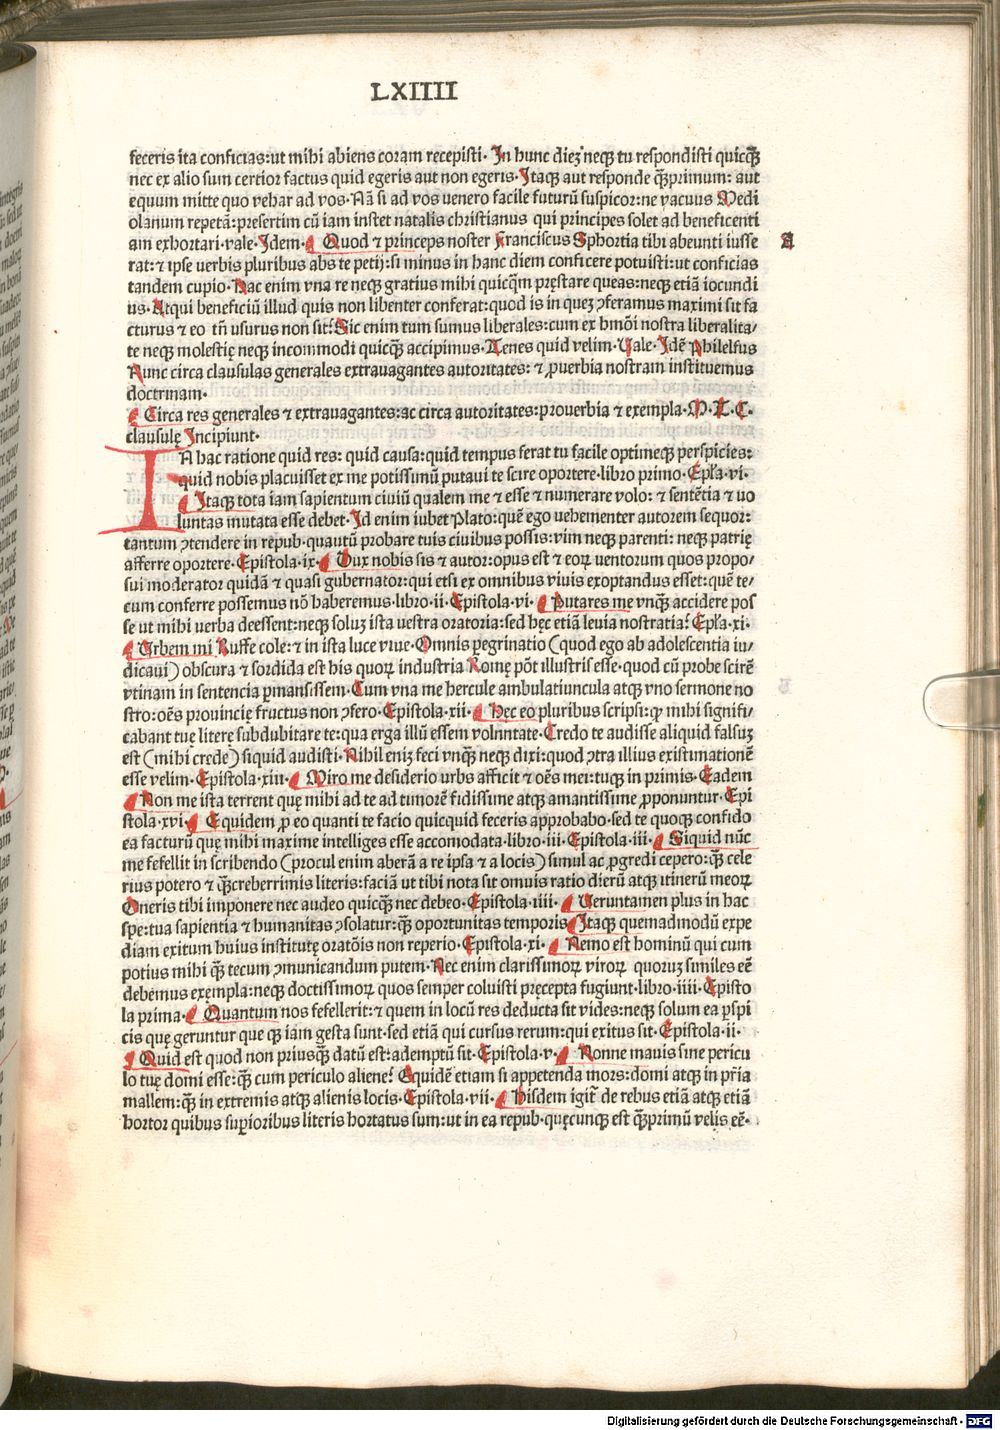 LXIIII
feceris ita conficias:ut mihi abiens coram recepisti. In hunc diez neqꝫ tu respondisti quicꝙ̃
nec ex alio sum certior factus quid egeris aut non egeris. Itaqꝫ aut responde ꝙ̃primum: aut
equum mitte quo vehar ad vos. Nã si ad vos venero facile futurũ suspicor:ne vacuus Medi
olanum repetã:presertim cũ iam instet natalis christianus qui principes solet ad beneficenti
am exhortari. vale. Idem. Quod ⁊ princeps noster Franciscus Sphortia tibi abeunti iusse
A
rat:⁊ ipse verbis pluribus abs te petij:si minus in hanc diem conficere potuisti:ut conficias
tandem cupio. Nac enim vna re neqꝫ gratius mihi quicꝙ̃m pręstare queas:neqꝫ etiã iocundi
us. Atqui beneficiũ illud quis non libenter conferat:quod is in quez ꝯferamus maximi sit fa
cturus ⁊ eo tñ usurus non sit? Sic enim tum sumus liberales:cum ex hmõi nostra liberalita/
te neqꝫ molestię neqꝫ incommodi quicꝙ̃ accipimus. Tenes quid velim. Vale. Idẽ Philelfus
Nunc circa clausulas generales extravagantes autoritates: ⁊ ꝓverbia nostram instituemus
doctrinam.
Circa res generales ⁊ extravagantes:ac circa autoritates:proverbia ⁊ exempla. M. T. C.
clausulę Incipiunt.
IA hac ratione quid res: quid causa:quid tempus ferat tu facile optimeqꝫ perspicies:
quid nobis placuisset ex me potissimũ putavi te scire oportere. libro primo. Epl̃a. vi.
Itaqꝫ tota iam sapientum civiũ qualem me ⁊ esse ⁊ numerare volo: ⁊ sentẽtia ⁊ vo
luntas mutata esse debet. Id enim iubet Plato:quẽ ego vehementer autorem sequor:
tantum ꝯtendere in repub. quantũ probare tuis civibus possis:vim neqꝫ parenti: neqꝫ patrię
afferre oportere. Epistola. ix. Dux nobis sis ⁊ autor:opus est ⁊ eoꝝ ventorum quos propo/
sui moderator quidã ⁊ quasi gubernator:qui etsi ex omnibus vivis exoptandus esset:quẽ te/
cum conferre possemus nõ haberemus. libro. ii. Epistola. vi. Putares me vnqꝫ accidere pos
se ut mihi verba deessent:neqꝫ soluz ista vestra oratoria:sed hęc etiã levia nostratia? Epl̃a. xi.
Urbem mi Ruffe cole: ⁊ in ista luce vive. Omnis pegrinatio (quod ego ab adolescentia iu/
dicavi) obscura ⁊ sordida est his quoꝝ industria Romę põt illustris esse. quod cũ probe scirẽ
vtinam in sentencia ꝑmansissem. Cum vna me hercule ambulatiuncula atqꝫ vno sermone no
stro:oẽs provincię fructus non ꝯfero. Epistola. xii. Hec eo pluribus scripsi:ꝙ mihi signifi/
cabant tuę litere subdubitare te:qua erga illũ essem volnntate. Credo te audisse aliquid falsuz
est (mihi crede) siquid audisti. Nihil eniz feci vnqꝫ neqꝫ dixi:quod ꝯtra illius existimationẽ
esse velim. Epistola. xiii. Miro me desiderio urbs afficit ⁊ oẽs mei:tuqꝫ in primis. Eadem
Non me ista terrent quę mihi ad te ad timorẽ fidissime atqꝫ amantissime ꝓponuntur. Epi
stola. xvi. Equidem ꝑ eo quanti te facio quicquid feceris approbabo. sed te quoqꝫ confido
ea facturũ quę mihi maxime intelliges esse accomodata. libro. iii. Epistola. iii. Siquid nũc
me fefellit in scribendo (procul enim aberã a re ipsa ⁊ a locis) simul ac ꝓgredi cepero:ꝙ̃ cele
rius potero ⁊ ꝙ̃creberrimis literis:faciã ut tibi nota sit omnis ratio dierũ atqꝫ itinerũ meoꝝ
Oneris tibi imponere nec audeo quicꝙ̃ nec debeo. Epistola. iiii. Veruntamen plus in hac
spe:tua sapientia ⁊ humanitas ꝯsolatur:ꝙ̃ oportunitas temporis Itaqꝫ quemadmodũ expe
diam exitum huius institutę oratõis non reperio. Epistola. xi. Nemo est hominũ qui cum
potius mihi ꝙ̃ tecum ꝯmunicandum putem. Nec enim clarissimoꝝ viroꝝ quoruz similes eẽ
debemus exẹmpla:neqꝫ doctissimoꝝ quos semper coluisti pręcepta fugiunt. libro. iiii. Episto
la prima. Quantum nos fefellerit:⁊ quem in locũ res deducta sit vides:neqꝫ solum ea ꝑspi
cis quę geruntur que ꝙ̃ iam gesta sunt. sed etiã qui cursus rerum:qui exitus sit. Epistola. ii.
Quid est quod non priusꝙ̃ datũ est:ademptũ sit. Epistola. v. Nonne mavis sine pericu
lo tuę domi esse:ꝙ̃ cum periculo aliene? Equidẽ etiam si appetenda mors:domi atqꝫ in pr̃ia
mallem:ꝙ̃ in extremis atqꝫ alienis locis. Epistola. vii. Hisdem igit̃ de rebus etiã atqꝫ etiã
hortor quibus suꝑioribus literis hortatus sum:ut in ea repub. quęcunqꝫ est ꝙ̃primũ velis eẽ.
Digitalisierung gefördert durch die Deutsche Forschungsgemeinschaft - DFG